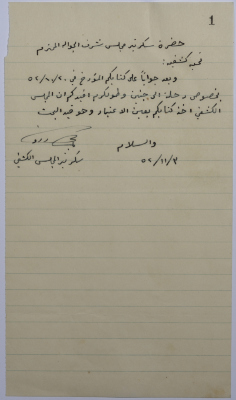 1
حضرة سكرتير مجلس شرف الجوالة المحترم
تحية كشفية:
وبعد جواباً على كتابكم المؤرخ في ٥٢/١٠/٢٠
بخصوص رحلة الى جنين وطولكرم افيدكم ان المجلس
الكشفي اخذ كتابكم بعين الاعتبار وهو قيد البحث
والسلام
٥٢/١١/٣
سكرتير المجلس الكشفي